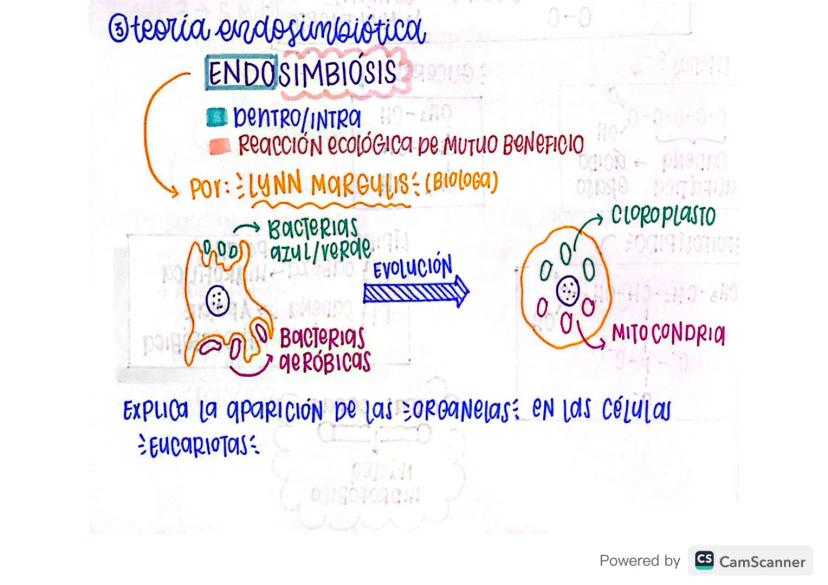 ③ teoría endosimbiótica
ENDOSIMBIÓSIS
DENTRO/INTRA
REACCIÓN ECOLÓGICA DE MUTUO BENEFICIO
POR: LYNN MARGULIS (BIOLOGA)
BACTERIAS
AZUL/VERDE
CLOROPLASTO
EVOLUCIÓN
BACTERIAS
AERÓBICAS
MITOCONDRIA
EXPLICA LA APARICIÓN DE LAS ORGANELAS EN LAS CÉLULAS
EUCARIOTAS
Powered by CS CamScanner